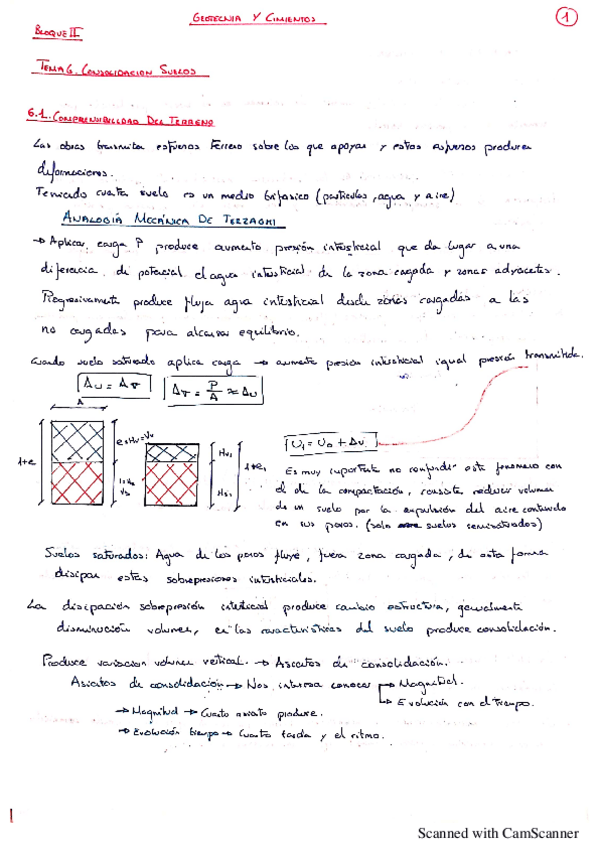 GEOTECNIA Y CIMIENTOS
1
BLOQUE II
TEMA 6. CONSOLIDACION SUELOS
6.1. COMPRENSIBILIDAD DEL TERRENO
Las obras transmiten esfuerzos terreno sobre los que apoyan y estos esfuerzos producen
deformaciones.
Teniendo cuenta suelo es un medio trifasico (particulas, agua y aire)
ANALOGÍA MECÁNICA DE TERZAGHI
→ Aplicar carga P produce aumento presión intersticial que da lugar a una
diferencia de potencial el agua intersticial de la zona cargada y zonas adyacentes.
Progresivamente produce flujo agua intersticial desde zonas cargadas a las
no cargadas para alcanzar equilibrio.
Cuando suelo saturado aplica carga → aumenta presión intersticial igual presión transmitida.
Δu = Δσ
Δσ = P/A ≈ Δu
A
e=Hv=Vv
Hv1
1+e
1+e1
Hs1
U1 = U0 + Δu
Es muy importante no confundir este fenomeno con
el de la compactación, consiste reducir volumen
de un suelo por la expulsión del aire contenido
en sus poros. (solo suelos semisaturados)
Suelos saturados: Agua de los poros fluye, fuera zona cargada, de esta forma
disipan estas sobrepresiones intersticiales.
La disipación sobrepresión intersticial produce cambio estructura, generalmente
disminución volumen, en las características del suelo produce consolidación.
Produce variacion volumen vertical. → Asientos de consolidación.
Asientos de consolidación → Nos interesa conocer → Magnitud.
→ Evolución con el tiempo.
→ Magnitud → Cuanto asiento produce.
→ Evolución tiempo → Cuanto tarda y el ritmo.
Scanned with CamScanner